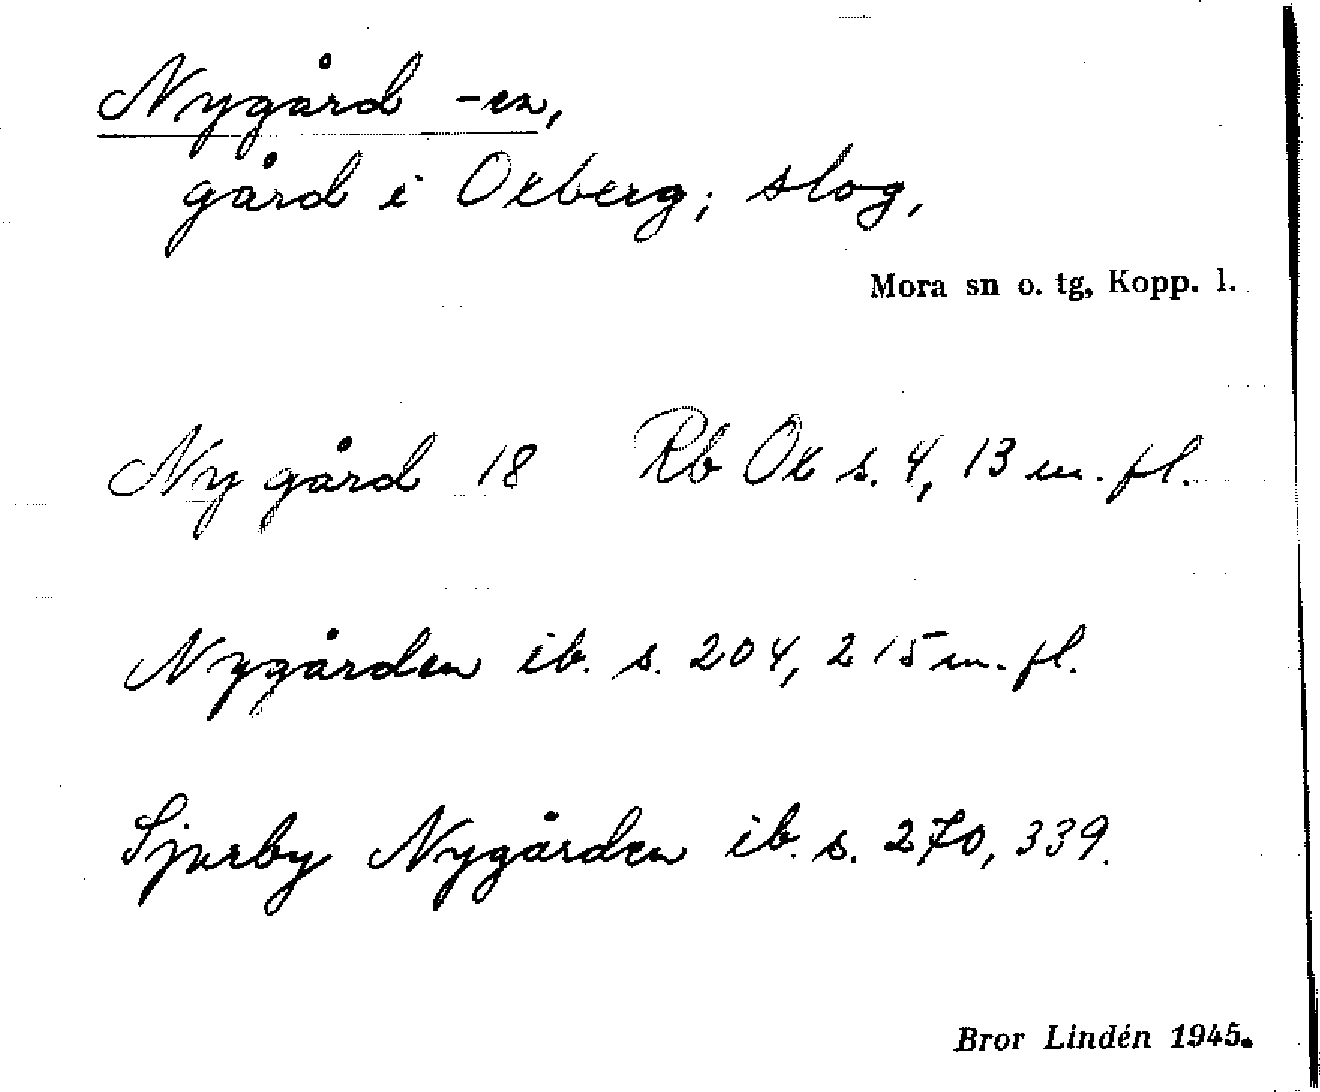 Nygård -en,
gård i Oxberg; slog,
Mora sn o. tg, Kopp. l.
Ny gård 18 Rb Ox s. 4, 13 m. fl.
Nygården ib. s. 204, 215 m. fl.
Sjurby Nygården ib. s. 270, 339.
Bror Lindén 1945.